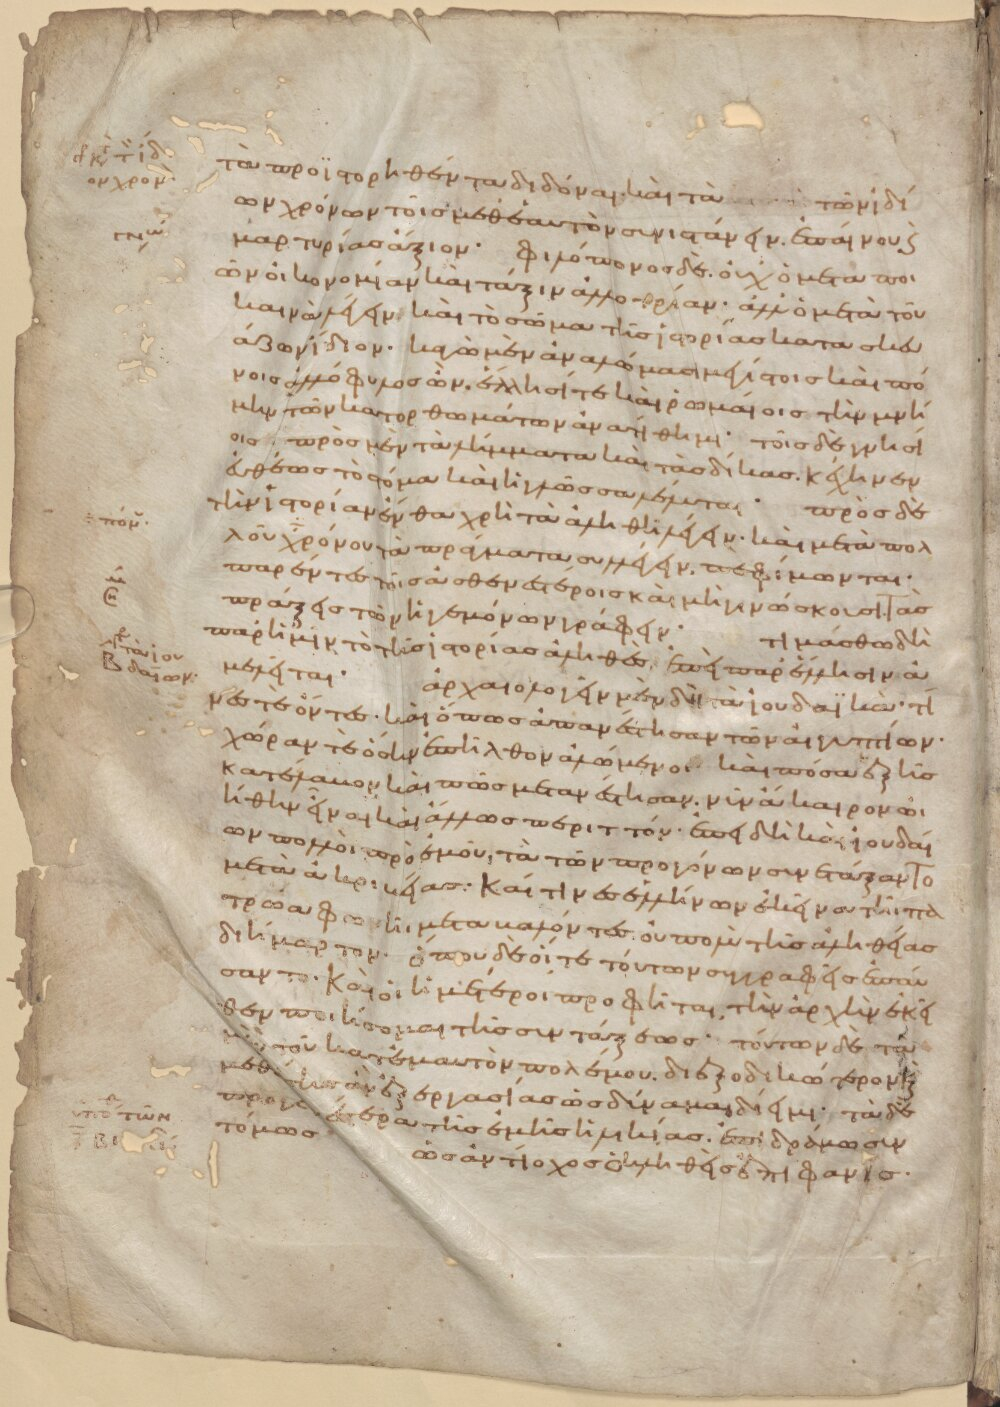 τὰ προϊστορηθέντα διδόναι· καὶ τὰ τῶν ἰδί
ων χρόνων τοῖς μεθ᾽ ἑαυτὸν συνιστάνειν. ἐπαίνου ϗ
μαρτυρίας ἄξιον· φιλόπονος δὲ. οὐχ ὁ μεταποι
ῶν οἰκονομίαν καὶ τάξιν ἀλλοτρίαν· ἀλλ᾽ ὁ μετὰ τοῦ
καινὰ λέγειν· καὶ τὸ σῶμα τῆς ἱστορίας κατασκευ
άζων ἴδιον· κἀγὼ μὲν ἀναλώμασι μεγίστοις καὶ πό
νοις ἀλλόφυλος ὢν. ἕλλησί τε καὶ ῥωμαίοις τὴν μνή
μην τῶν κατορθωμάτων ἀνατίθημι· τοῖς δὲ γνησί
οις πρὸς μὲν τὰ λήμματα καὶ τὰς δίκας. κέχηνεν
εὐθέως τὸ στόμα καὶ ἡ γλῶσσα λέλυται· πρὸς δὲ
τὴν ἱστορίαν ἔνθα χρὴ τὰ ἀληθῆ λέγειν· καὶ μετὰ πολ
λοῦ χρόνου τὰ πράγματα συλλέγειν. πεφίμωνται·
παρέντες τοῖς ἀσθενεστέροις καὶ μὴ γινώσκουσι τὰς
πράξεις τῶν ἡγεμόνων γράφειν· τιμάσθω δὴ
παρ᾽ ἡμῖν τὸ τῆς ἱστορίας ἀληθές. ἐπεὶ παρ᾽ ἕλλησιν ἀ
μελεῖται· ἀρχαιολογεῖν μὲν δὴ τὰ ἰουδαϊκὰ· τί
νες τε ὄντες· καὶ ὅπως ἀπανέστησαν τῶν αἰγυπτίων·
χώραν τε ὅσην ἐπῆλθον ἀλώμενοι· καὶ πόσα ἑξῆς
κατέλαβον καὶ πῶς μετανέστησαν. νῦν ἄκαιρον ᾠ
ήθην εἶναι καὶ ἄλλως περιττόν· ἐπειδὴ καὶ ἰουδαί
ων πολλοὶ πρὸ ἐμοῦ, τὰ τῶν προγόνων συνετάξαντο
μετὰ ἀκριβείας· καί τινες ἑλλήνων ἐκεῖνα τῇ πα
τρώα φωνῇ μεταβαλόντες. οὐ πολὺ τῆς ἀληθείας
διήμαρτον· ὅπου δὲ οἵ τε τούτων συγγραφεῖς ἐπαύ
σαντο· καὶ οἱ ἡμέτεροι προφῆται, τὴν ἀρχὴν ἐκεῖ
θεν ποιήσομαι τῆς συντάξεως· τούτων δὲ τὰ
μὲν τοῦ κατ᾽ ἐμαυτὸν πολέμου. διεξοδικώτερον ϗ
μεθ᾽ ἂν ἐξεργασίας ὡς δύναμαι δίειμι· τὰ δὲ
προγενέστερα τῆς ἐμῆς ἡλικίας. ἐπιδράμω συν
τόμως ὡς ἀντίοχος ὁ κληθεὶς ἐπιφανής·